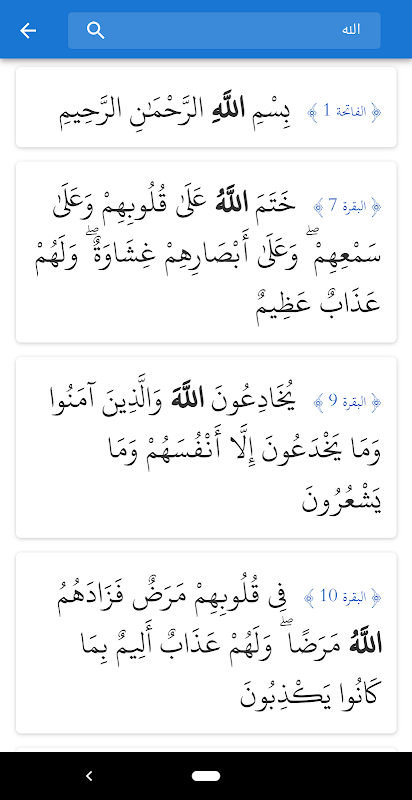 الله
﴿ الفاتحة 1 ﴾ بِسْمِ اللَّهِ الرَّحْمَٰنِ الرَّحِيمِ
﴿ البقرة 7 ﴾ خَتَمَ اللَّهُ عَلَىٰ قُلُوبِهِمْ وَعَلَىٰ
سَمْعِهِمْ ۖ وَعَلَىٰ أَبْصَارِهِمْ غِشَاوَةٌ ۖ وَلَهُمْ
عَذَابٌ عَظِيمٌ
﴿ البقرة 9 ﴾ يُخَادِعُونَ اللَّهَ وَالَّذِينَ آمَنُوا
وَمَا يَخْدَعُونَ إِلَّا أَنْفُسَهُمْ وَمَا
يَشْعُرُونَ
﴿ البقرة 10 ﴾ فِي قُلُوبِهِمْ مَرَضٌ فَزَادَهُمُ
اللَّهُ مَرَضًا ۖ وَلَهُمْ عَذَابٌ أَلِيمٌ بِمَا
كَانُوا يَكْذِبُونَ